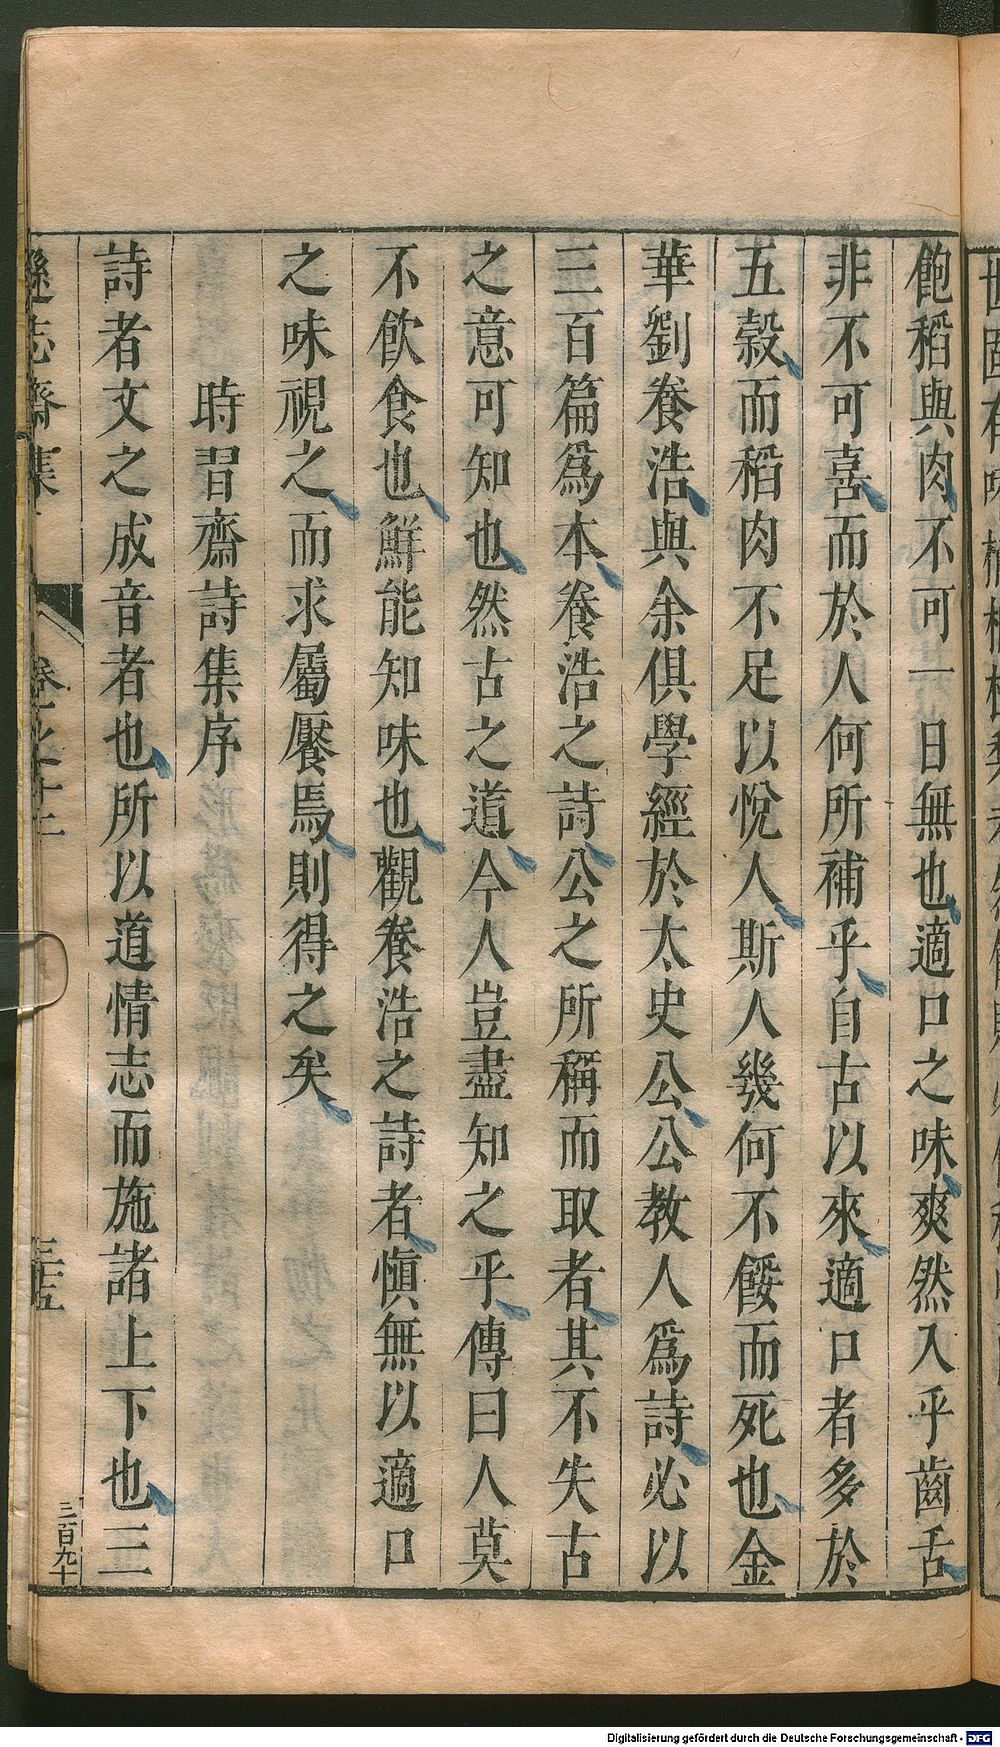 飽稻與肉不可一日無也適口之味爽然入乎齒舌
非不可喜而於人何所補乎自古以來適口者多於
五穀而稻肉不足以悅人斯人幾何不餒而死也金
華劉養浩與余俱學經於太史公公教人爲詩必以
三百篇爲本養浩之詩公之所稱而取者其不失古
之意可知也然古之道今人豈盡知之乎傳曰人莫
不飲食也鮮能知味也觀養浩之詩者愼無以適口
之味視之而求屬饜焉則得之矣
時習齋詩集序
詩者文之成音者也所以道情志而施諸上下也三
遜志齋集
卷之十二
三五
三百九十
Digitalisierung gefördert durch die Deutsche Forschungsgemeinschaft - DFG